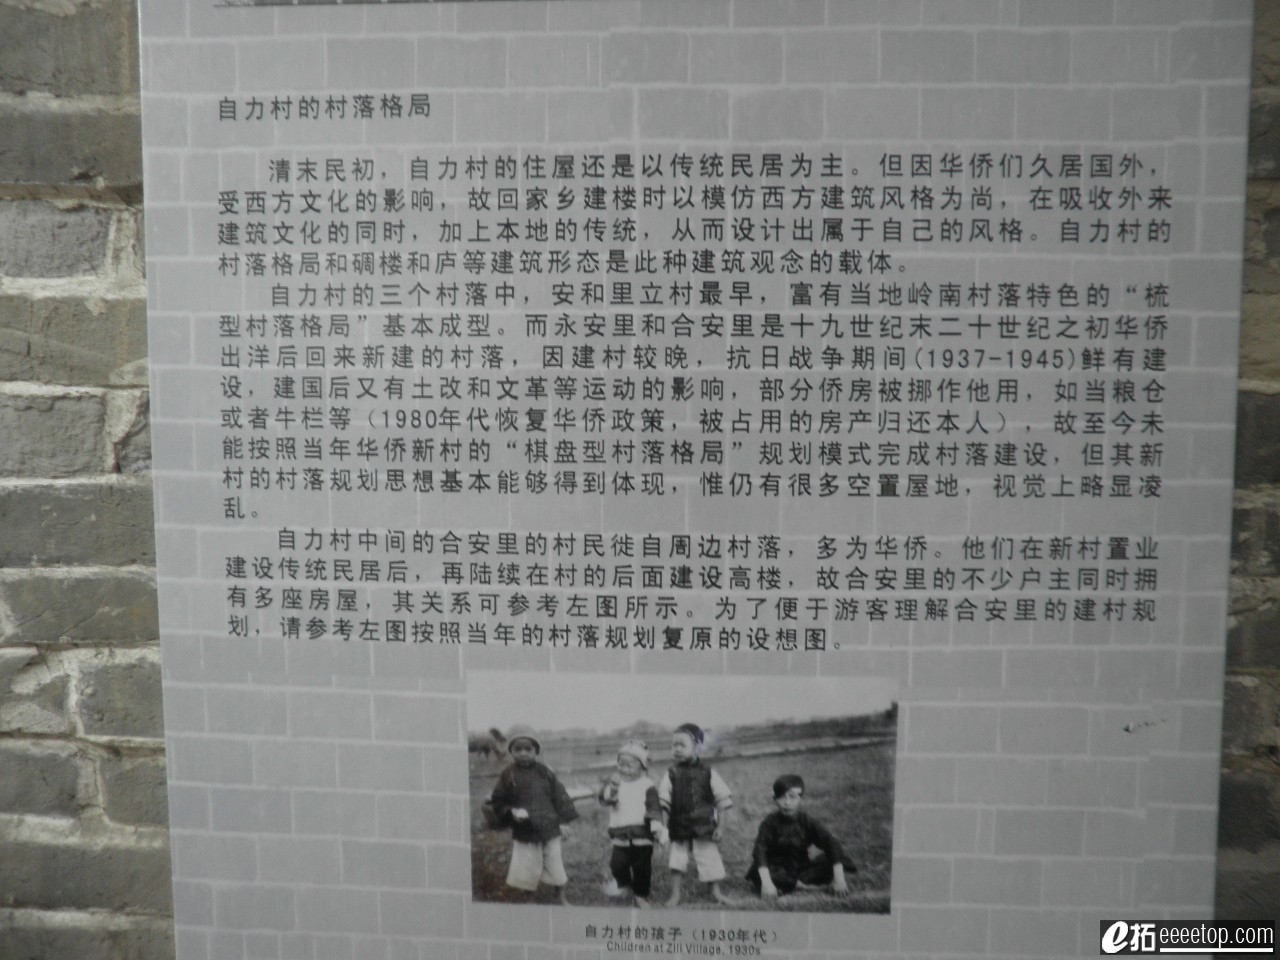 自力村的村落格局
清末民初，自力村的住屋还是以传统民居为主。但因华侨们久居国外，
受西方文化的影响，故回家乡建楼时以模仿西方建筑风格为尚，在吸收外来
建筑文化的同时，加上本地的传统，从而设计出属于自己的风格。自力村的
村落格局和碉楼和庐等建筑形态是此种建筑观念的载体。
自力村的三个村落中，安和里立村最早，富有当地岭南村落特色的“梳
型村落格局”基本成型。而永安里和合安里是十九世纪末二十世纪之初华侨
出洋后回来新建的村落，因建村较晚，抗日战争期间(1937-1945)鲜有建
设，建国后又有土改和文革等运动的影响，部分侨房被挪作他用，如当粮仓
或者牛栏等（1980年代恢复华侨政策，被占用的房产归还本人），故至今未
能按照当年华侨新村的“棋盘型村落格局”规划模式完成村落建设，但其新
村的村落规划思想基本能够得到体现，惟仍有很多空置屋地，视觉上略显凌
乱。
自力村中间的合安里的村民徙自周边村落，多为华侨。他们在新村置业
建设传统民居后，再陆续在村的后面建设高楼，故合安里的不少户主同时拥
有多座房屋，其关系可参考左图所示。为了便于游客理解合安里的建村规
划，请参考左图按照当年的村落规划复原的设想图。
自力村的孩子（1930年代）
Children at Zili Village, 1930s
e拓 eeeetop.com